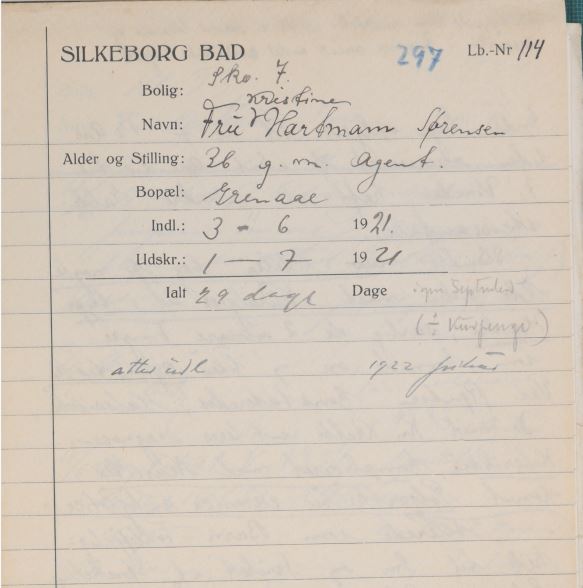 SILKEBORG BAD 297 Lb.-Nr 114
Bolig: Sko. 7.
Kristine
Navn: Fru Hartmann Sørensen
Alder og Stilling: 36 g. m. Agent.
Bopæl: Grenaae
Indl.: 3 - 6 1921.
Udskr.: 1 — 7 1921
Ialt 29 dage Dage igen September
(÷ Kurpenge)
atter indl 1922